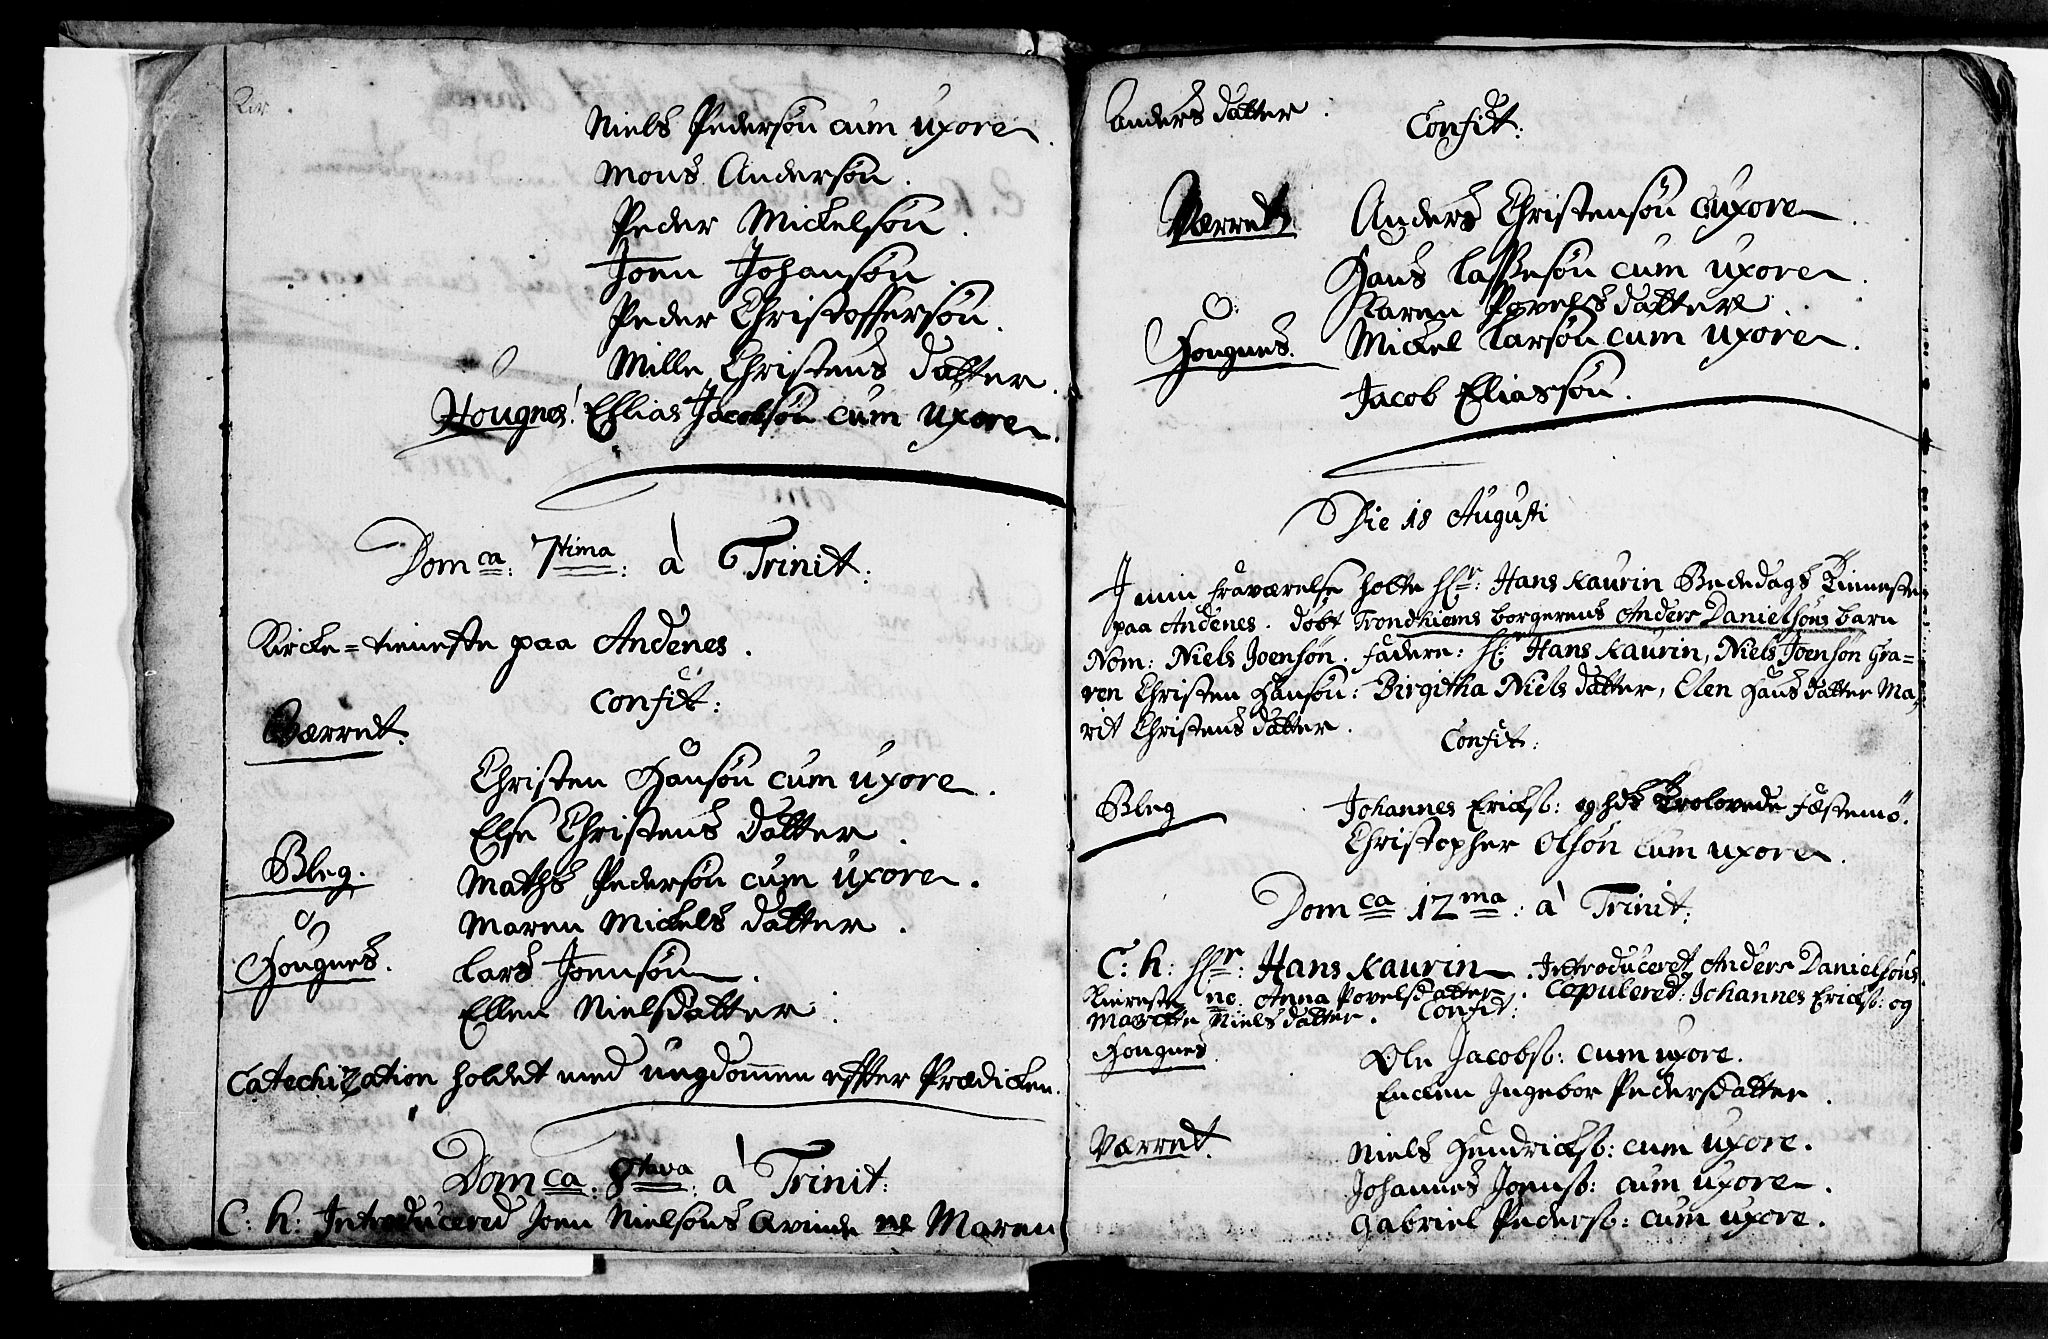 Kir
Niels Pedersøn cum uxore
Mons Andersøn.
Peder Mickelsøn.
Joen Johansøn.
Peder Christoffersøn.
Mille Christens datter.
Hougnes: Elias Jacobsøn cum uxore.
Domca: 7tima: à Trinit:
Kircke=tieneste paa Andenes.
Confit:
Værret.
Christen Hansøn cum uxore.
Else Christens datter.
Bleg.
Maths Pedersøn cum uxore.
Maren Mickels datter.
Hougnes.
Lars Joensøn.
Ellen Nielsdatter.
Catechization holdet med ungdommen effter Prædicken.
Domca: 8tava: à Trinit:
C: h: Introducered Joen Nielsøns Qvinde ne Maren
Anders datter.
Confit:
Værret
Anders Christensøn cuxore.
Hans Lassesøn cum uxore.
Maren Povels datter.
Hougnes.
Mickel Larsøn cum uxore.
Jacob Eliassøn.
Die 18 Augusti
I min fraværelse holte Hr: Hans Kaurin Bededags tienesten
paa Andenes. døbt Trondhiems borgerens Anders Danielsøns barn
Nom: Niels Joensøn. Faddere: Hr: Hans Kaurin, Niels Joensøn Gra=
ven Christen Hansøn: Birgitha Niels datter, Elen Hans datter Ma=
rit Christens datter.
Confit:
Bleg
Johannes Ericks: og hds trolovede Fæstemø.
Christopher Olsøn cum uxore.
Domca 12ma: à Trinit:
C: h: Hr: Hans Kaurin. Introduceret Anders Danielsøns
Kiereste no: Anna Povelsdatter. Copuleret: Johannes Ericks: og
Marette Niels datter. Confit:
Hougnes.
Ole Jacobs: cum uxore.
Encken Ingebor Pedersdatter.
Værret.
Niels Hendricks: cum uxore.
Johannes Joens: cum uxore.
Gabriel Peders: cum uxore.